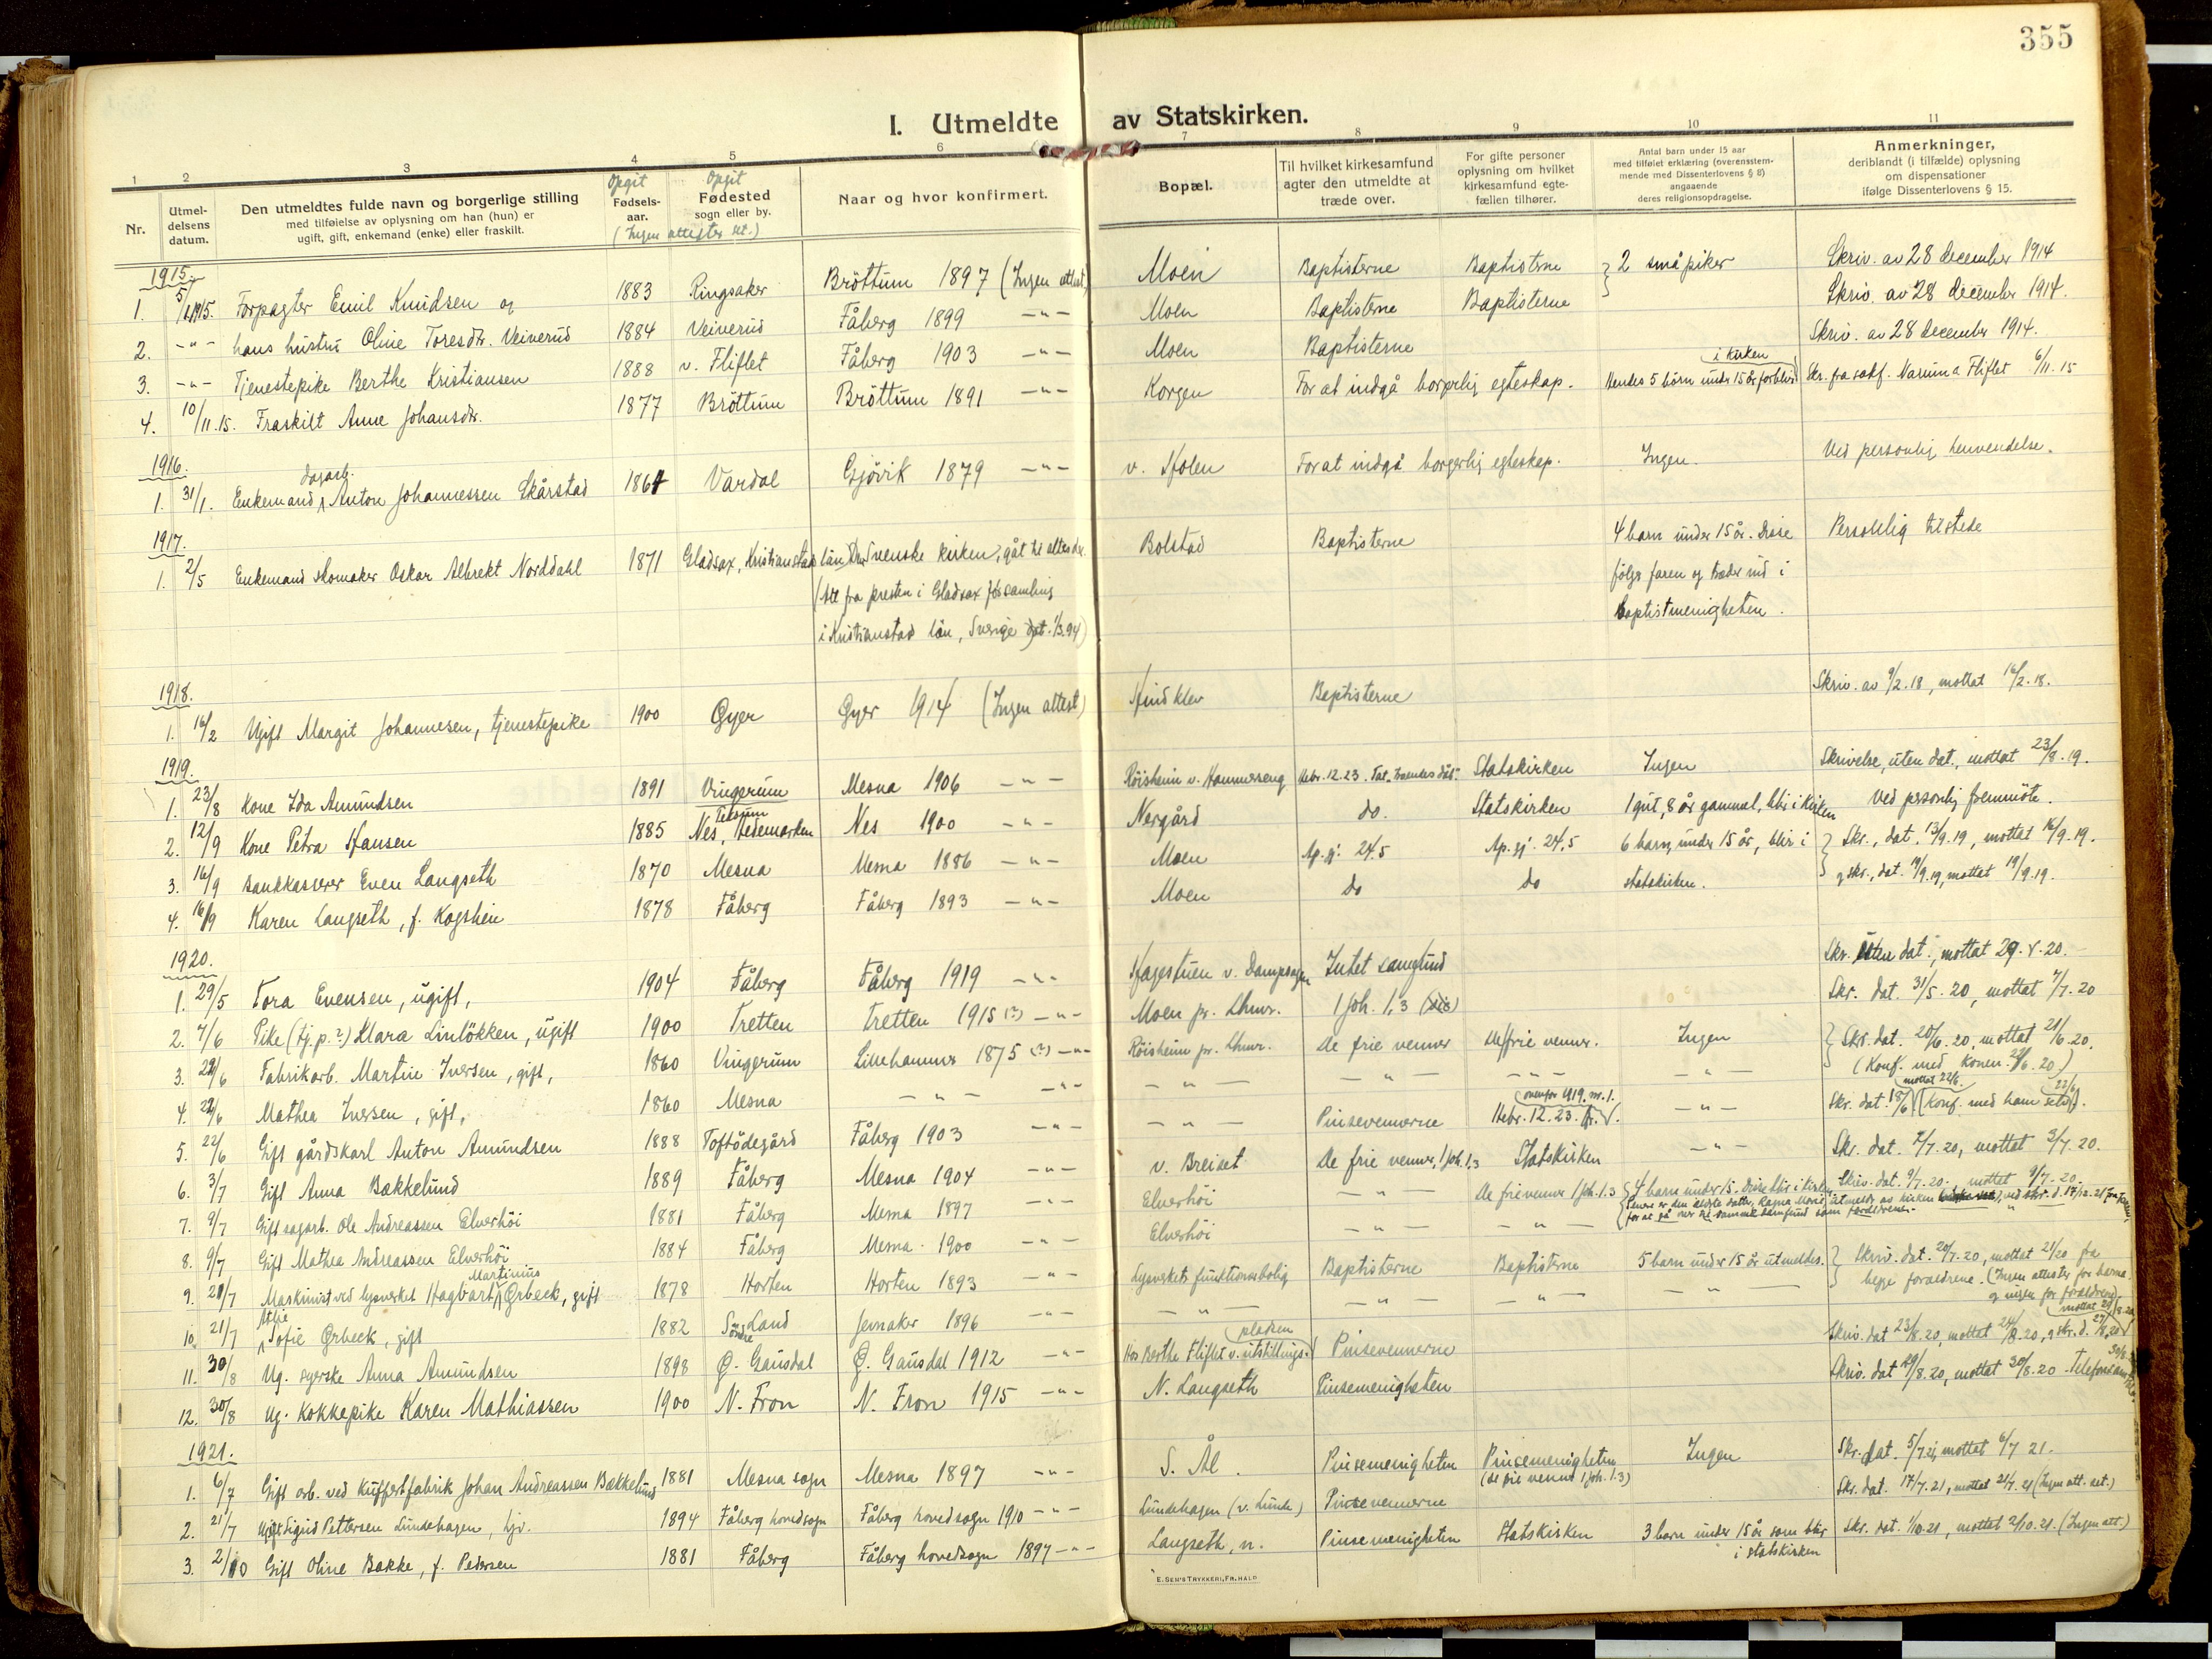 355
I. Utmeldte av Statskirken.
1 2 3 4 5 6 7 8 9 10 11
Nr.
Utmel-
delsens
datum.
Den utmeldtes fulde navn og borgerlige stilling
med tilføielse av oplysning om han (hun) er
ugift, gift, enkemand (enke) eller fraskilt.
Opgit
Fødsels-
aar.
Opgit
Fødested
sogn eller by.
(Ingen attester set.)
Naar og hvor konfirmert.
Bopæl.
Til hvilket kirkesamfund
agter den utmeldte at
træde over.
For gifte personer
oplysning om hvilket
kirkesamfund egte-
fællen tilhører.
Antal barn under 15 aar
med tilføiet erklæring (overensstem-
mende med Dissenterlovens § 8)
angaaende
deres religionsopdragelse.
Anmerkninger,
deriblandt (i tilfælde) oplysning
om dispensationer
ifølge Dissenterlovens § 15.
1915.
1. 5/1 1915. Forpagter Emil Knudsen og 1883 Ringsaker Brøttum 1897 (Ingen attest) Moen Baptisterne Baptisterne } 2 småpiker Skriv. av 28 december 1914
2. -"- hans hustru Oline Toresdtr. Veiverud 1884 Veiverud Fåberg 1899 -"- Moen Baptisterne Baptisterne Skriv. av 28 december 1914.
3. -"- Tjenestepike Berthe Kristiansen 1888 v. Fliflet Fåberg 1903 -"- Moen Baptisterne Skriv. av 28 december 1914.
4. 10/11.15. Fraskilt Anne Johansdtr. 1877 Brøttum Brøttum 1891 -"- Korgen For at indgå borgerlig egteskap. Hendes 5 børn under 15 år forblir i kirken Skr. fra sakf. Narum a Fliflet 6/11.15
1916.
1. 31/1. Enkemand dagarb. Anton Johannessen Skårstad 1864 Vardal Gjövik 1879 -"- v. Stolen For at indgå borgerlig egteskap. Ingen. Ved personlig henvendelse.
1917.
1. 2/5 Enkemand skomaker Oskar Albrekt Norddahl 1871 Gladsax, Kristianstad län Den Svenske kirken, gåt til alters der. Bolstad Baptisterne 4 barn under 15 år. Disse Personlig tilstede
(Att fra presten i Gladsax församling følge faren og træder ind i
i Kristianstad län, Sverige dat. 1/3.94) baptistmenigheten.
1918.
1. 16/2 Ugift Margit Johannesen, tjenestepike 1900 Øyer Øyer 1914 (Ingen attest) Baptisterne Skriv. av 9/2.18, mottat 16/2.18.
1919.
1. 23/8 Kone Ida Amundsen 1891 Vingerum Mesna 1906 -"- Röisheim v. Hammerseng Hebr. 12.23. Statskirken Ingen Skrivelse, uten dat., mottat 23/8.19.
2. 12/9 Kone Petra Hansen 1885 Nes, Hedemarken Nes 1900 -"- Nergård do. Statskirken 1 gut, 8 år gammel, blir i kirken Ved personlig fremmøte.
3. 16/9 Bankkasserer Even Langseth 1870 Mesna Mesna 1886 -"- Moen Ap. gj. 24.5 Ap. gj. 24.5 6 barn, under 15 år, blir i } Skr., dat. 13/9.19, mottat 16/9.19.
4. 16/9 Karen Langseth, f. Kogstien 1878 Fåberg Fåberg 1893 -"- Moen do do statskirken. og skr., dat. 19/9.19, mottat 19/9.19.
1920.
1. 29/5 Tora Evensen, ugift, 1904 Fåberg Fåberg 1919 -"- Hagestuen v. Dampsagen Intet samfund Skr. uten dat., mottat 29.5.20.
2. 7/6 Pike (tj.p.?) Klara Linløkken, ugift 1900 Tretten Tretten 1915 (?) -"- Moen pr. Lhmr. 1 Joh. 1,3 Skr. dat. 31/5.20, mottat 7/7.20
3. 22/6 Fabrikarb. Martin Iversen, gift, 1860 Vingerum Lillehammer 1875 (?) -"- Röisheim pr. Lhmr. De frie venner De frie venner. Ingen } Skr. dat. 20/6.20, mottat 21/6.20.
4. 22/6 Mathea Iversen, gift, 1860 Mesna -"- -"- -"- -"- -"- -"- (Konf. med konen 22/6.20)
5. 22/6 Gift gårdskarl Anton Amundsen 1888 Toftødegård Fåberg 1903 -"- -"- Pinsevennerne ovenfor 1919, nr. 1. Hebr. 12.23. -"- Skr. dat. 18/6 mottat 22/6. (Konf. med ham selv 22/6).
6. 3/7 Gift Anna Bakkelund 1889 Fåberg Mesna 1904 -"- v. Breiset De frie venner, 1 Joh. 1,3 Statskirken -"- Skr. dat. 2/7.20, mottat 3/7.20.
7. 9/7 Gift sagarb. Ole Andreassen Elverhöi 1881 Fåberg Mesna 1897 -"- Elverhöi -"- De frie venner 1 Joh. 1.3 { 4 barn under 15. Disse blir i kirken Skriv. dat. 9/7.20. mottet 9/7.20.
8. 9/7 Gift Mathea Andreassen Elverhöi 1884 Fåberg Mesna 1900 -"- Elverhöi -"- -"- for at gå over til samme samfund som forældrene.
9. 21/7 Maskinist ved lysverket Hagbart Martinius Ørbeck, gift 1878 Horten Horten 1893 -"- Lysverkets funktionærbolig Baptisterne Baptisterne 5 barn under 15 år utmeldes. } Skriv. dat. 20/7.20, mottat 21/7.20 fra
10. 21/7 Sofie Ørbeck, gift 1882 Søndre Land Jevnaker 1896 -"- -"- -"- -"- -"- begge forældrene. (Ingen attester for barna og ingen for forældrene).
11. 30/8 Ug. syerske Anna Amundsen 1898 Ø. Gausdal Ø. Gausdal 1912 -"- Hos Berthe Fliflet v. utstillings-pladsen Pinsevennerne Skriv. dat 23/8.20, mottat 24/8.20, og skr. d. 27/8.20
12. 30/8 Ug. kokkepike Karen Mathiassen 1900 N. Fron N. Fron 1915 -"- N. Langseth Pinsemenigheten Skriv. dat 29/8.20, mottat 30/8.20
1921.
1. 6/7 Gift arb. ved kuffertfabrik Johan Andreassen Bakkelund 1881 Mesna sogn Mesna 1897 -"- S. Ål. Pinsemenigheten Pinsemenigheten Ingen Skr. dat. 5/7.21, mottat 6/7 21.
(de frie venner 1 Joh. 1.3)
2. 21/7 Ugift Sigrid Pettersen Lundehagen, tj. 1894 Fåberg hovedsogn Fåberg hovedsogn 1910 -"- Lundehagen (v. Lunde) Pinsevennerne Skr. dat. 17/7.21, mottat 21/7.21 (Ingen att. set.)
3. 2/10 Gift Oline Bakke, f. Pedersen 1881 Fåberg Fåberg hovedsogn 1897 -"- Langseth, n. Pinsemenigheten Statskirken 3 barn under 15 år som blir Skr. dat. 1/10.21, mottat 2/10.21. (Ingen att.)
i statskirken
E. SEM'S TRYKKERI, FR.HALD